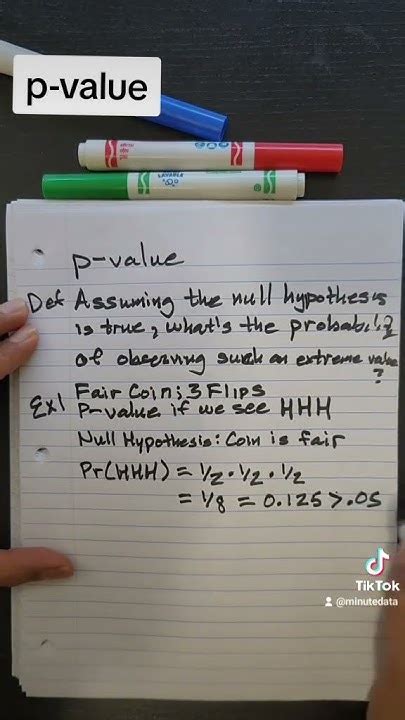 p-value
p-value
Def Assuming the null hypothesis
is true, what's the probability
of observing such an extreme value
?
Ex1 Fair Coin; 3 Flips
P-value if we see HHH
Null Hypothesis: Coin is fair
Pr(HHH) = 1/2 · 1/2 · 1/2
= 1/8 = 0.125 > .05
TikTok
@minutedata